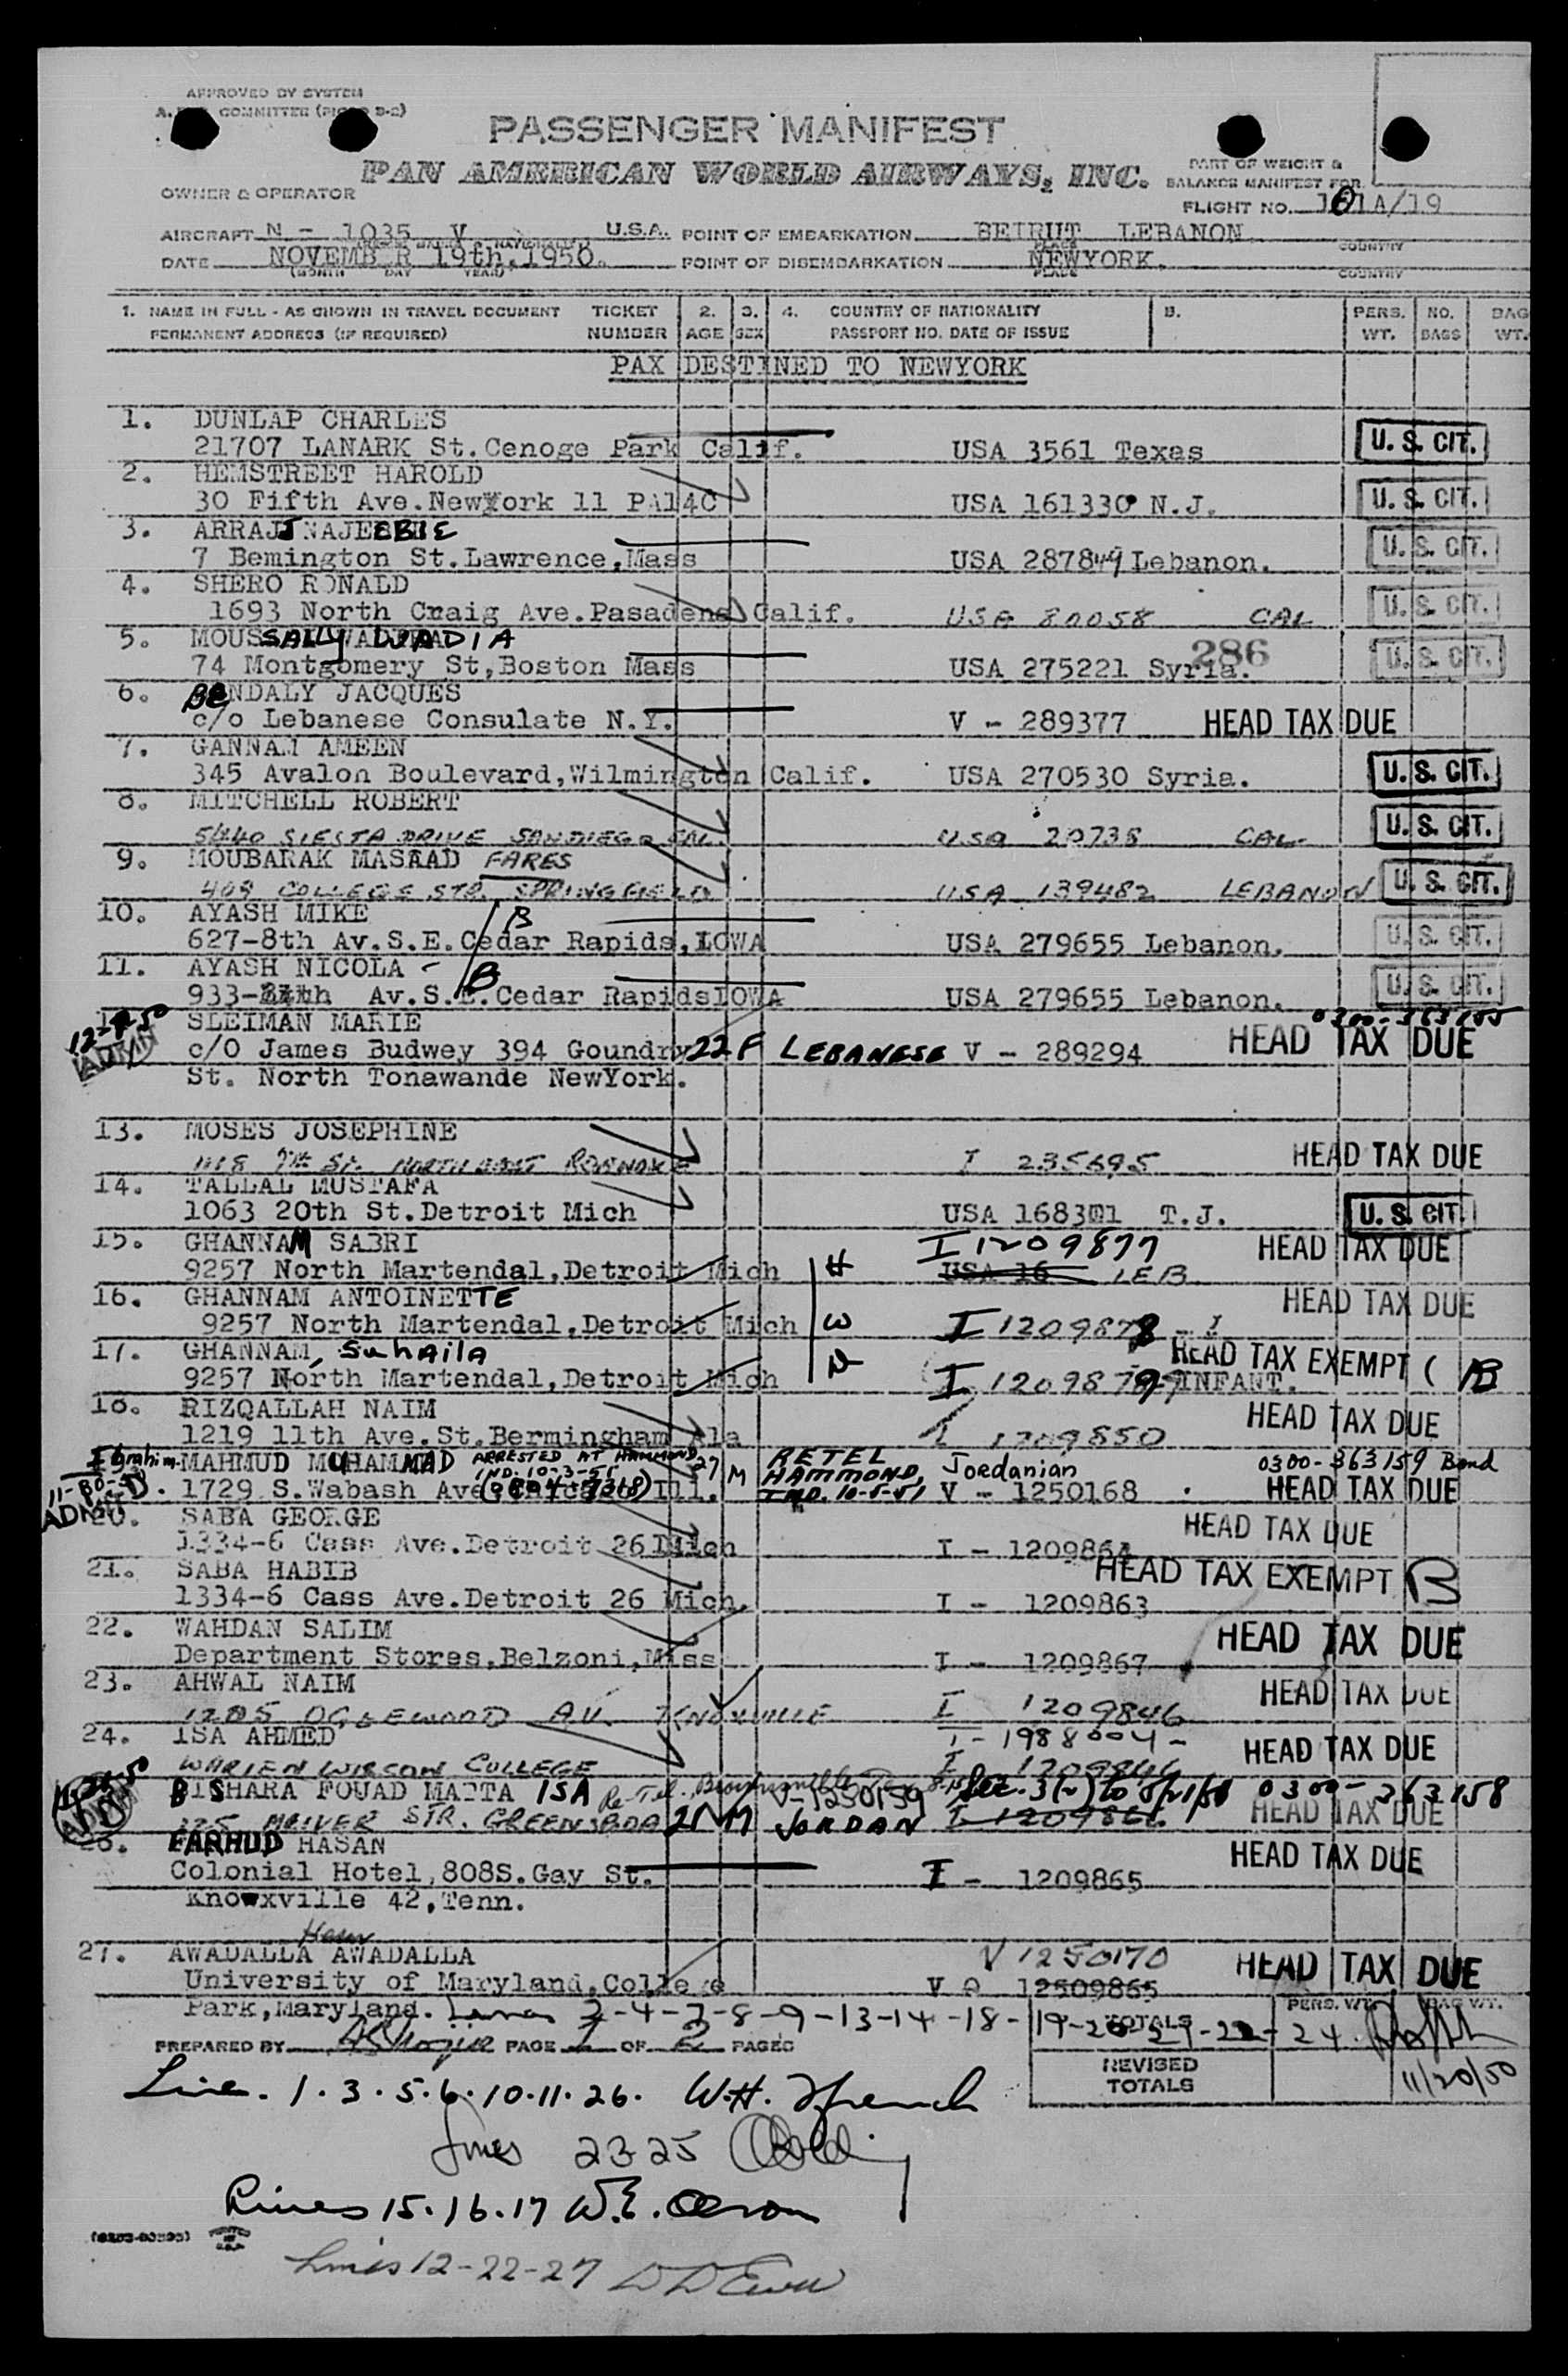 APPROVED BY SYSTEM
COMMITTEE
PASSENGER MANIFEST
PAN AMERICAN WORLD AIRWAYS, INC.
PART OF WEIGHT &
BALANCE MANIFEST FOR
OWNER & OPERATOR
FLIGHT NO. 101A/19
AIRCRAFT N - 1035 V U.S.A. POINT OF EMBARKATION BEIRUT LEBANON.
PLACE COUNTRY
DATE NOVEMBER 19th, 1950. POINT OF DISEMBARKATION NEWYORK.
(MONTH DAY YEAR) PLACE COUNTRY
1. NAME IN FULL - AS SHOWN IN TRAVEL DOCUMENT TICKET 2. 3. 4. COUNTRY OF NATIONALITY PERS. NO. BAG
PERMANENT ADDRESS (IF REQUIRED) NUMBER AGE SEX PASSPORT NO. DATE OF ISSUE WT. BAGS WT.
PAX DESTINED TO NEWYORK
1. DUNLAP CHARLES
21707 LANARK St. Cenoge Park Calif. USA 3561 Texas U. S. CIT.
2. HEMSTREET HAROLD
30 Fifth Ave. NewYork 11 PA14C USA 161330 N.J. U. S. CIT.
3. ARRAJ NAJEEBIE
7 Bemington St. Lawrence, Mass USA 287849 Lebanon. U. S. CIT.
4. SHERO RONALD
1693 North Craig Ave. Pasadena Calif. USA 80058 CAL U. S. CIT.
5. MOUSSALLY WADIA
286
74 Montgomery St, Boston Mass USA 275221 Syria. U. S. CIT.
6. BENDALY JACQUES
c/o Lebanese Consulate N.Y. V - 289377 HEAD TAX DUE
7. GANNAM AMEEN
345 Avalon Boulevard, Wilmington Calif. USA 270530 Syria. U. S. CIT.
8. MITCHELL ROBERT
SIESTA DRIVE SAN DIEGO CAL. USA 20738 CAL- U. S. CIT.
9. MOUBARAK MASAAD FARES
409 COLLEGE STR. SPRINGFIELD USA 139482 LEBANON U. S. CIT.
10. AYASH MIKE B
627-8th Av. S.E. Cedar Rapids, IOWA USA 279655 Lebanon. U. S. CIT.
11. AYASH NICOLA - B
933- Av. S.E. Cedar Rapids IOWA USA 279655 Lebanon. U. S. CIT.
SLEIMAN MARIE 0300-363155
c/O James Budwey 394 Goundry 22 F LEBANESE V - 289294 HEAD TAX DUE
St. North Tonawande NewYork.
13. MOSES JOSEPHINE
1118 7th St. ROANOKE I 235695 HEAD TAX DUE
14. TALLAL MUSTAFA
1063 20th St. Detroit Mich USA T.J. U. S. CIT.
15. GHANNAM SABRI I 1209877 HEAD TAX DUE
9257 North Martendal, Detroit Mich H USA 16 LEB
16. GHANNAM ANTOINETTE HEAD TAX DUE
9257 North Martendal, Detroit Mich W I 1209878
17. GHANNAM, Suhaila HEAD TAX EXEMPT ( B
9257 North Martendal, Detroit Mich D I 1209879 INFANT.
18. RIZQALLAH NAIM HEAD TAX DUE
1219 11th Ave. St. Bermingham Ala I 1209850
Ibrahim MAHMUD MUHAMMAD ARRESTED AT HAMMOND IND. 10-3-51 27 M RETEL HAMMOND, IND. 10-5-51 Jordanian 0300-363159 Bond
1729 S. Wabash Ave. Chicago Ill. V - 1250168 HEAD TAX DUE
20. SABA GEORGE HEAD TAX DUE
1334-6 Cass Ave. Detroit 26 Mich I - 1209864
21. SABA HABIB HEAD TAX EXEMPT B
1334-6 Cass Ave. Detroit 26 Mich. I - 1209863
22. WAHDAN SALIM HEAD TAX DUE
Department Stores, Belzoni, Miss I - 1209867
23. AHWAL NAIM HEAD TAX DUE
AV. KNOXVILLE I 1209846
24. ISA AHMED I - 1988004 - HEAD TAX DUE
WARREN WILSON COLLEGE I 1209846
BISHARA FOUAD MATTA ISA V-1250159 Sec. 3(2) to 0300-363158
STR. GREENSBORO 21 M JORDAN I 1209866 HEAD TAX DUE
26. FARHUD HASAN HEAD TAX DUE
Colonial Hotel, 808S. Gay St. I - 1209865
Knowxville 42, Tenn.
27. AWADALLA AWADALLA V 1250170 HEAD TAX DUE
University of Maryland, College V 12509865
Park, Maryland. Lines 2-4-7-8-9-13-14-18-19-20-21-22-24. TOTALS PERS. WT. BAG WT.
PREPARED BY PAGE 1 OF 2 PAGES
REVISED TOTALS 11/20/50
Line. 1. 3. 5. 6. 10. 11. 26. W.H. French
Lines 23 25
Lines 15. 16. 17 W.E.
Lines 12-22-27